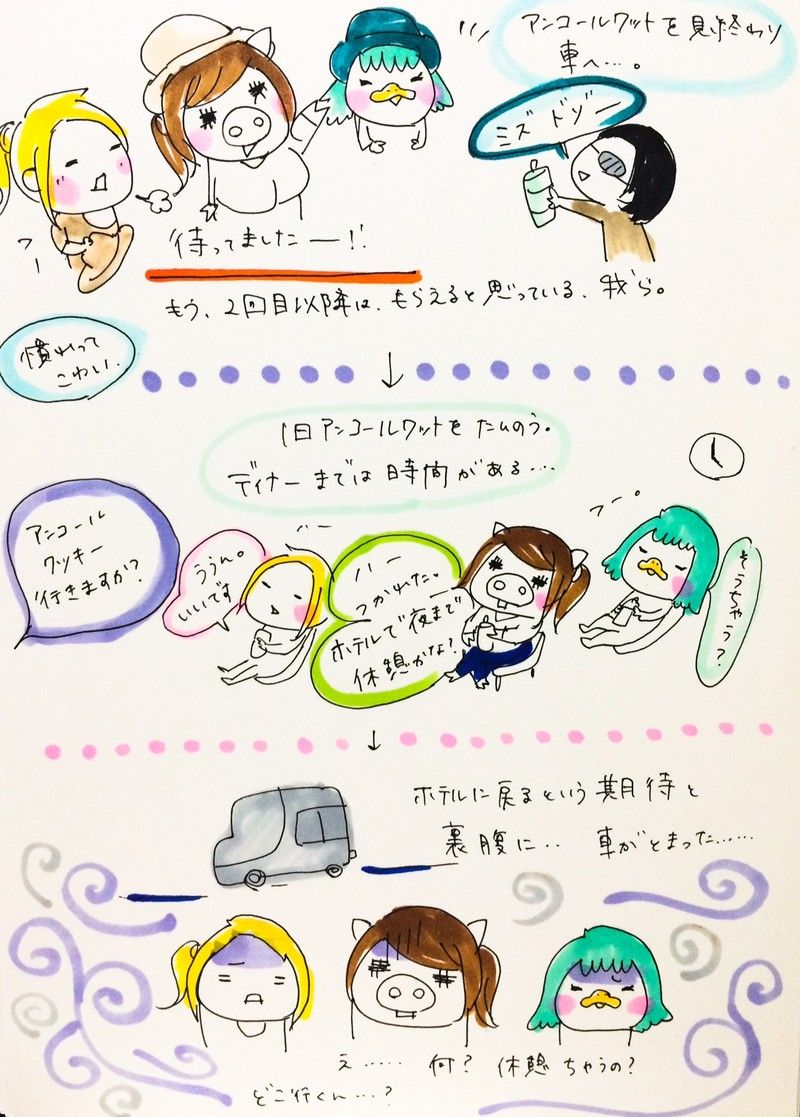 アンコールワットを見終わり
車へ…。
ミズ ドゾー
待ってましたー!!
フー
もう、2回目以降は、もらえると思っている、我ら。
慣れって
こわい。
1日アンコールワットをたんのう。
ディナーまでは時間がある…
アンコール
クッキー
行きますか?
ううん。
いいです
ハー
つかれた。
ホテルで夜まで
休憩かな?
フー。
そうちゃう?
ホテルに戻るという期待と
裏腹に‥ 車がとまった……
え…… 何? 休憩ちゃうの?
どこ行くん…?